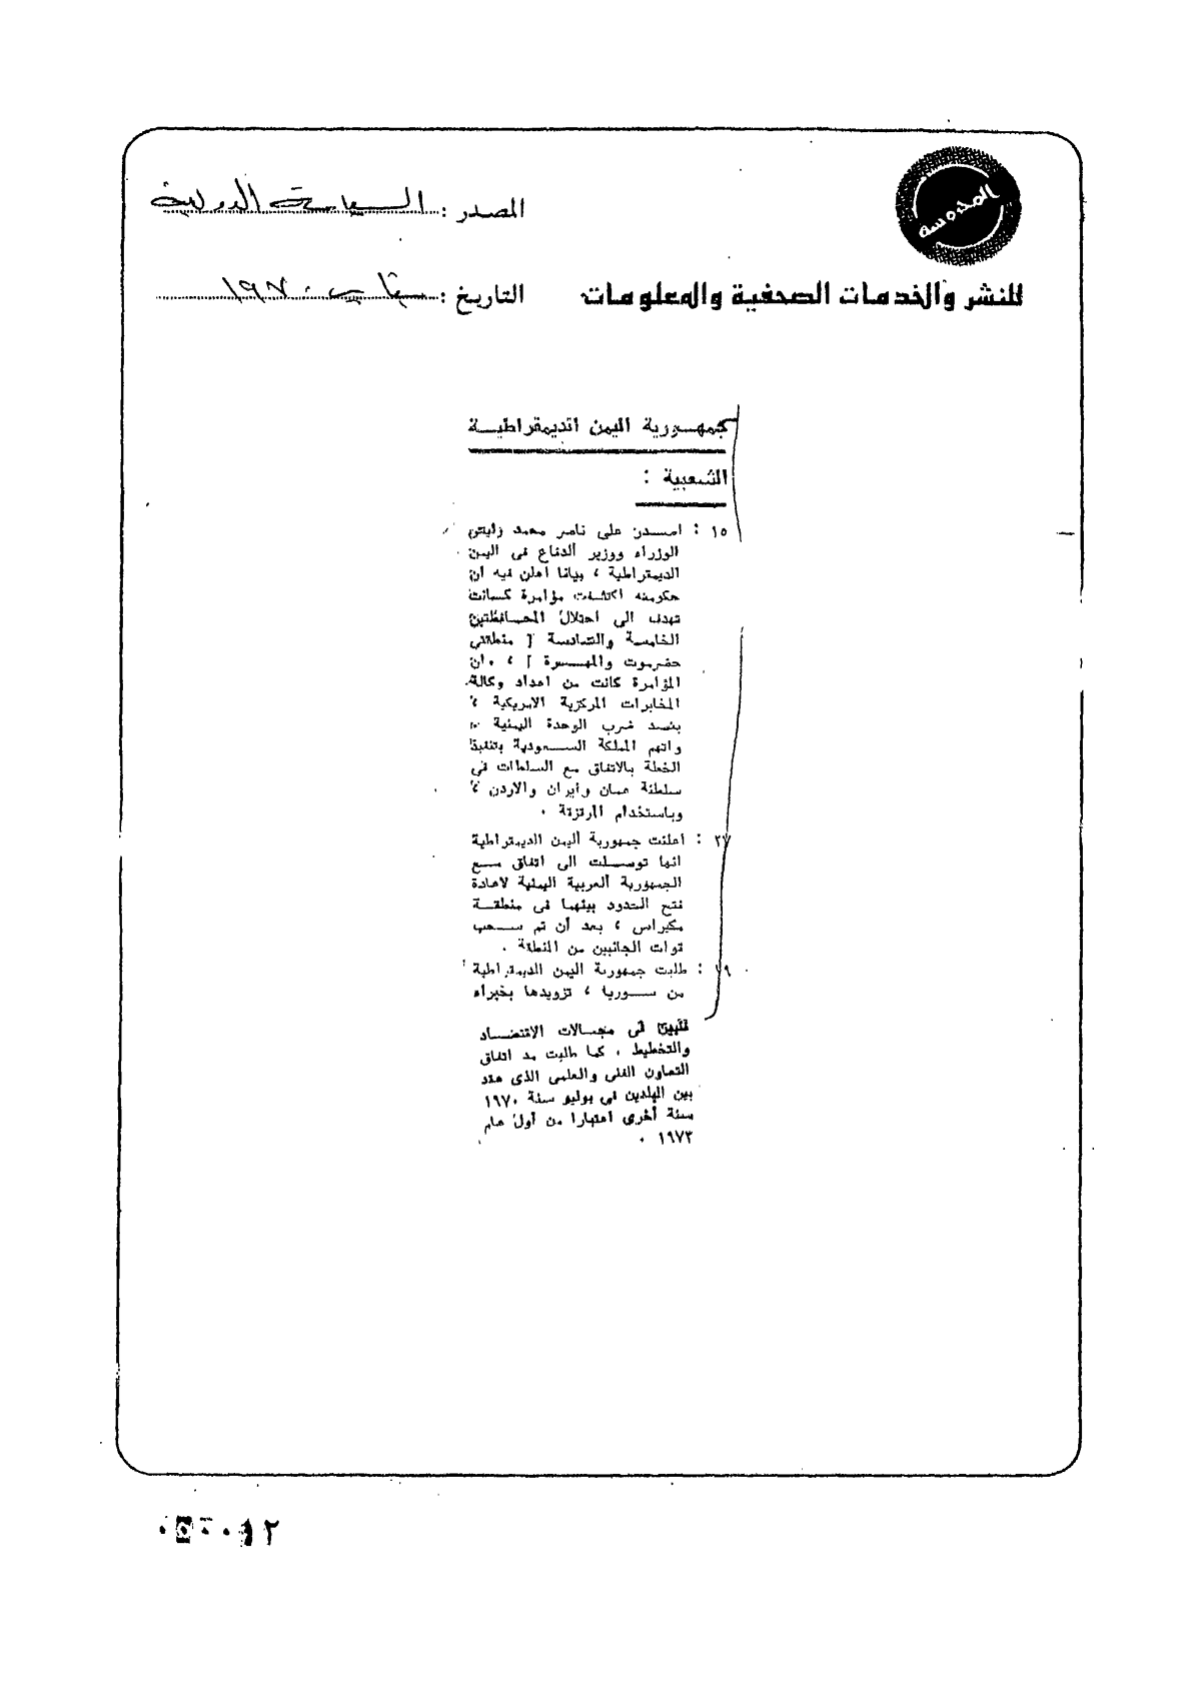 المحروسة
المصدر : السياسة الدولية
للنشر والخدمات الصحفية والمعلومات
التاريخ : ١٩٧٠
جمهورية اليمن الديمقراطية
الشعبية :
١٥ : اصدر على ناصر محمد رئيس
الوزراء ووزير الدفاع فى اليمن
الديمقراطية ، بيانا اعلن فيه ان
حكومته اكتشفت مؤامرة كانت
تهدف الى احتلال المحافظتين
الخامسة والسادسة [ منطقتى
حضرموت والمهرة ] ، وان
المؤامرة كانت من اعداد وكالة
المخابرات المركزية الامريكية ،
بقصد ضرب الوحدة اليمنية ..
واتهم المملكة السعودية بتنفيذ
الخطة بالاتفاق مع السلطات فى
سلطنة عمان وايران والاردن ،
وباستخدام المرتزقة .
٢٧ : اعلنت جمهورية اليمن الديمقراطية
انها توصلت الى اتفاق مع
الجمهورية العربية اليمنية لاعادة
فتح الحدود بينهما فى منطقة
مكيراس ، بعد أن تم سحب
قوات الجانبين من المنطقة .
٢٩ : طلبت جمهورية اليمن الديمقراطية
من سوريا ، تزويدها بخبراء
فى مجالات الاقتصاد
والتخطيط ، كما طلبت مد اتفاق
التعاون الفنى والعلمى الذى عقد
بين البلدين فى يوليو سنة ١٩٧٠
سنة أخرى اعتبارا من أول عام
١٩٧٣ .